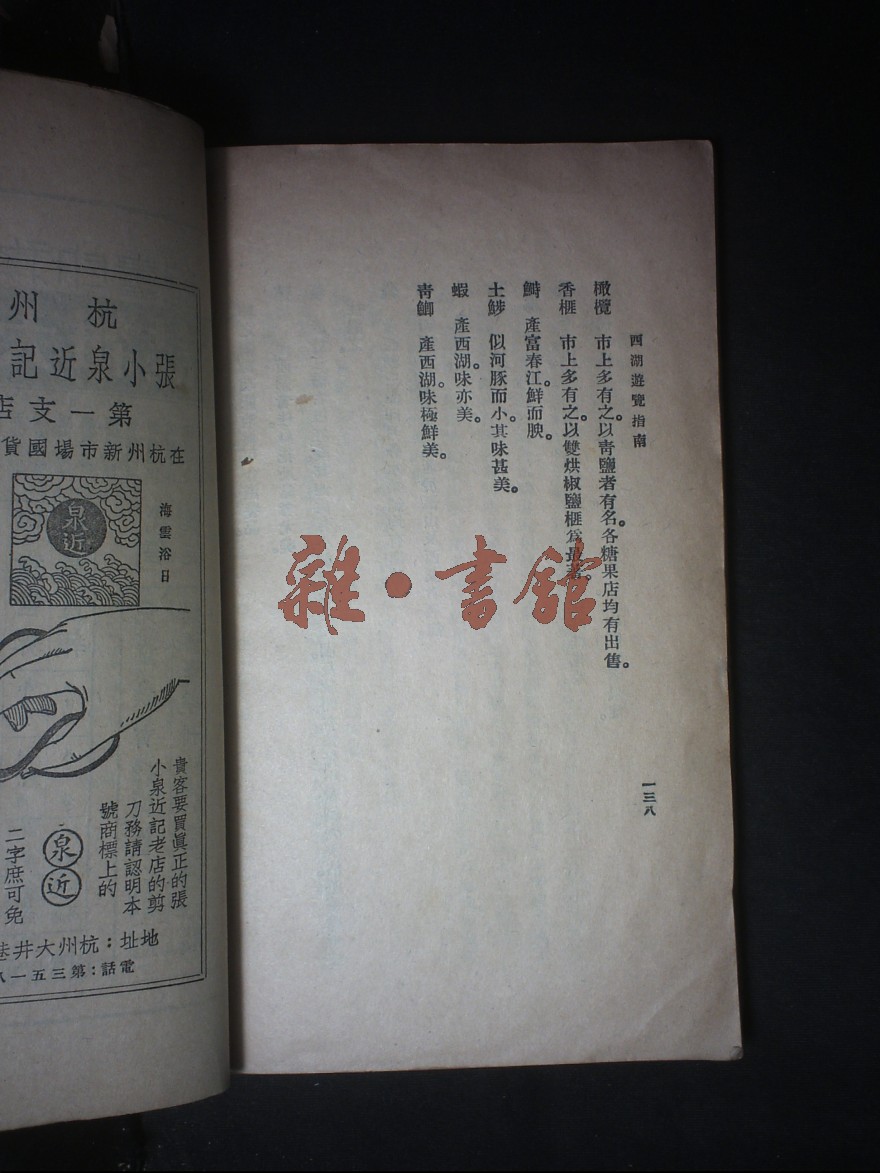 西湖遊覽指南
橄欖　市上多有之。以青鹽者有名。各糖果店均有出售。
香榧　市上多有之。以雙烘椒鹽榧爲最著。
鰣　產富春江。鮮而腴。
土鯋　似河豚而小。其味甚美。
蝦　產西湖。味亦美。
青鯽　產西湖。味極鮮美。
一三八
雜·書館
杭州
張小泉近記
第一支店
在杭州新市場國貨
海雲浴日
泉近
貴客要買眞正的張
小泉近記老店的剪
刀務請認明本
號商標上的
泉近
二字庶可免
地址：杭州大井巷
電話：第三五一八